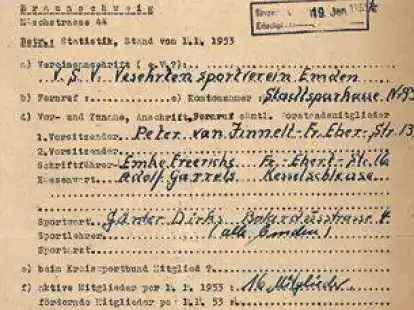 Braunschweig
Höchstrasse 44
19. Jan. 1953
Betr.: Statistik, Stand vom 1.1. 1953
a) Vereinsanschrift ( e.V.?):
V.S.V. Versehrtensportverein Emden
b) Fernruf : c) Kontonummer Stadtsparkasse
d) Vor- und Zuname, Anschrift, Fernruf sämtl. Vorstandsmitglieder
1.Vorsitzender Peter van Jinnelt - Fr. Eber. Str. 13
2.Vorsitzender
Schriftführer Emke Freerichs Fr.-Ebert-Str. 16
Kassenwart Adolf Garrels Kesselschleuse
Sportwart Günter Dirks Bolardusstrasse
Sportlehrer (alle Emden)
Sportarzt
e) beim Kreissportbund Mitglied ?
f) aktive Mitglieder per 1.1. 1953 : 16 Mitglieder
fördernde Mitglieder per 1.1. 53 :